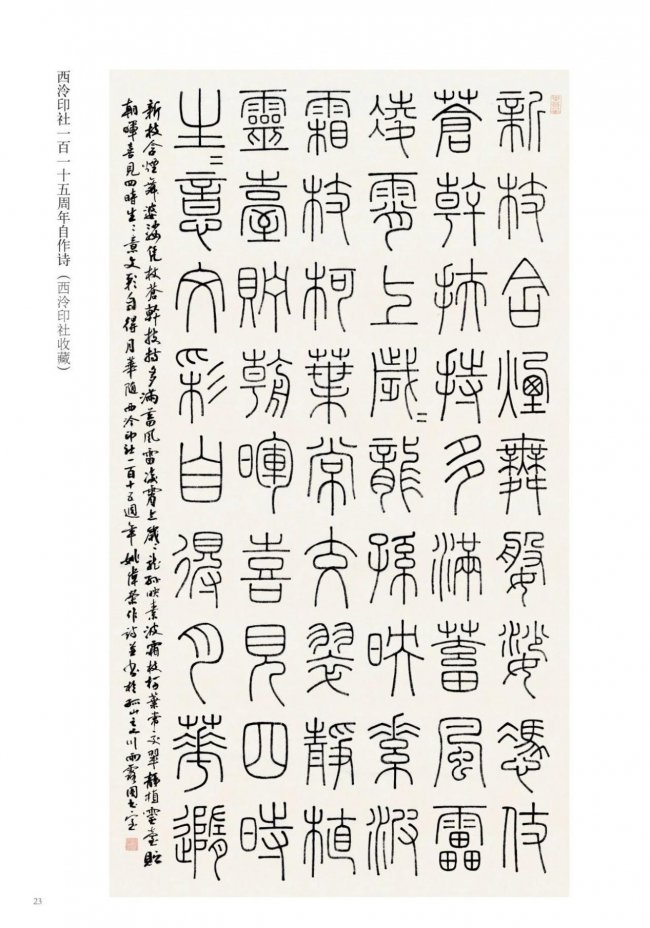 新枝含煙舞媻娑憑仗
蒼幹扶持多滿蓄風雷
凌霄上歲〻龍孫映素波
霜枝柯葉常交翠靜植
靈臺貯朝暉喜見四時
生〻意文彩自得月華隨
新枝含煙舞婆娑凭仗蒼幹扶持多滿蓄風雷凌霄上歲〻龍孫映素波霜枝柯葉常交翠靜植靈臺貯
朝暉喜見四時生〻意文彩自得月華隨 西泠印社一百十五週年 姚偉榮作詩並書於孤山之川雨露圖書室
西泠印社一百一十五周年自作诗（西泠印社收藏）
23